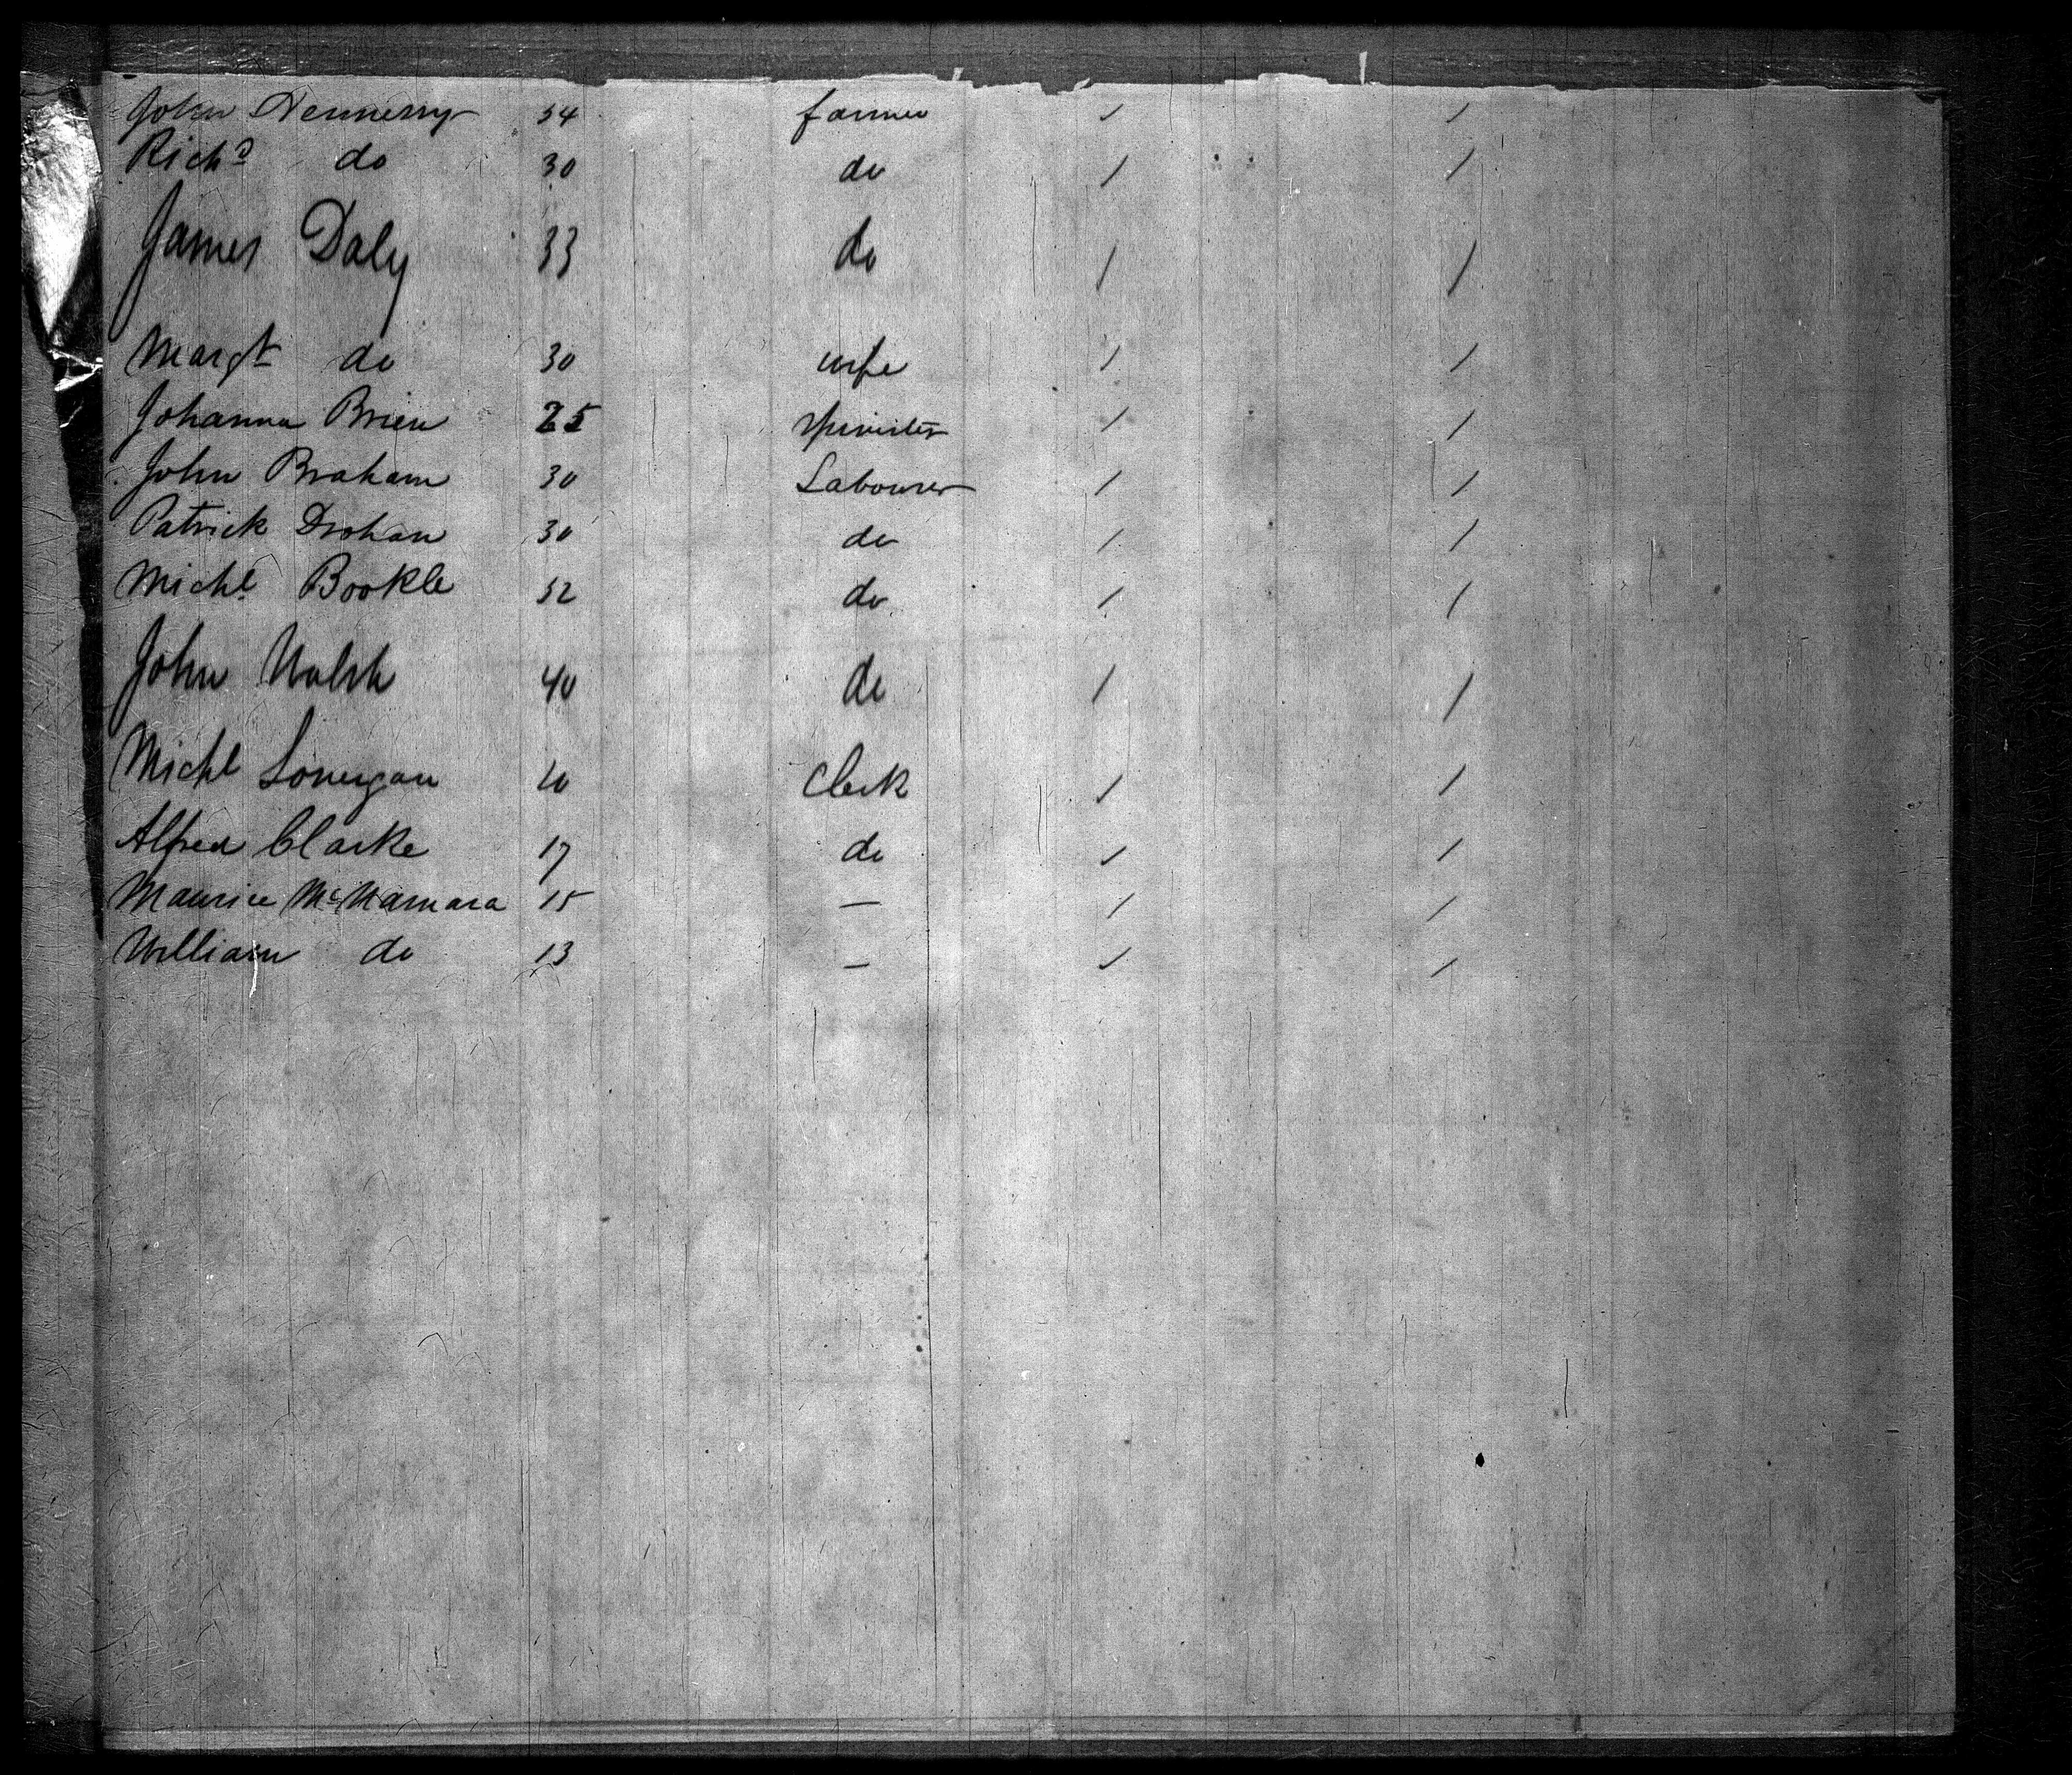 John Hennessy 34 farmer / /
Richd do 30 do / /
James Daly 33 do / /
Margt do 30 wife / /
Johanna Brien 25 Spinister / /
John Braham 30 Labourer / /
Patrick Drohan 30 do / /
Michl Bookle 32 do / /
John Walsh 40 do / /
Michl Lonergan Clerk / /
Alfred Clarke 17 do / /
Maurice McNamara 15 — / /
William do 13 — / /